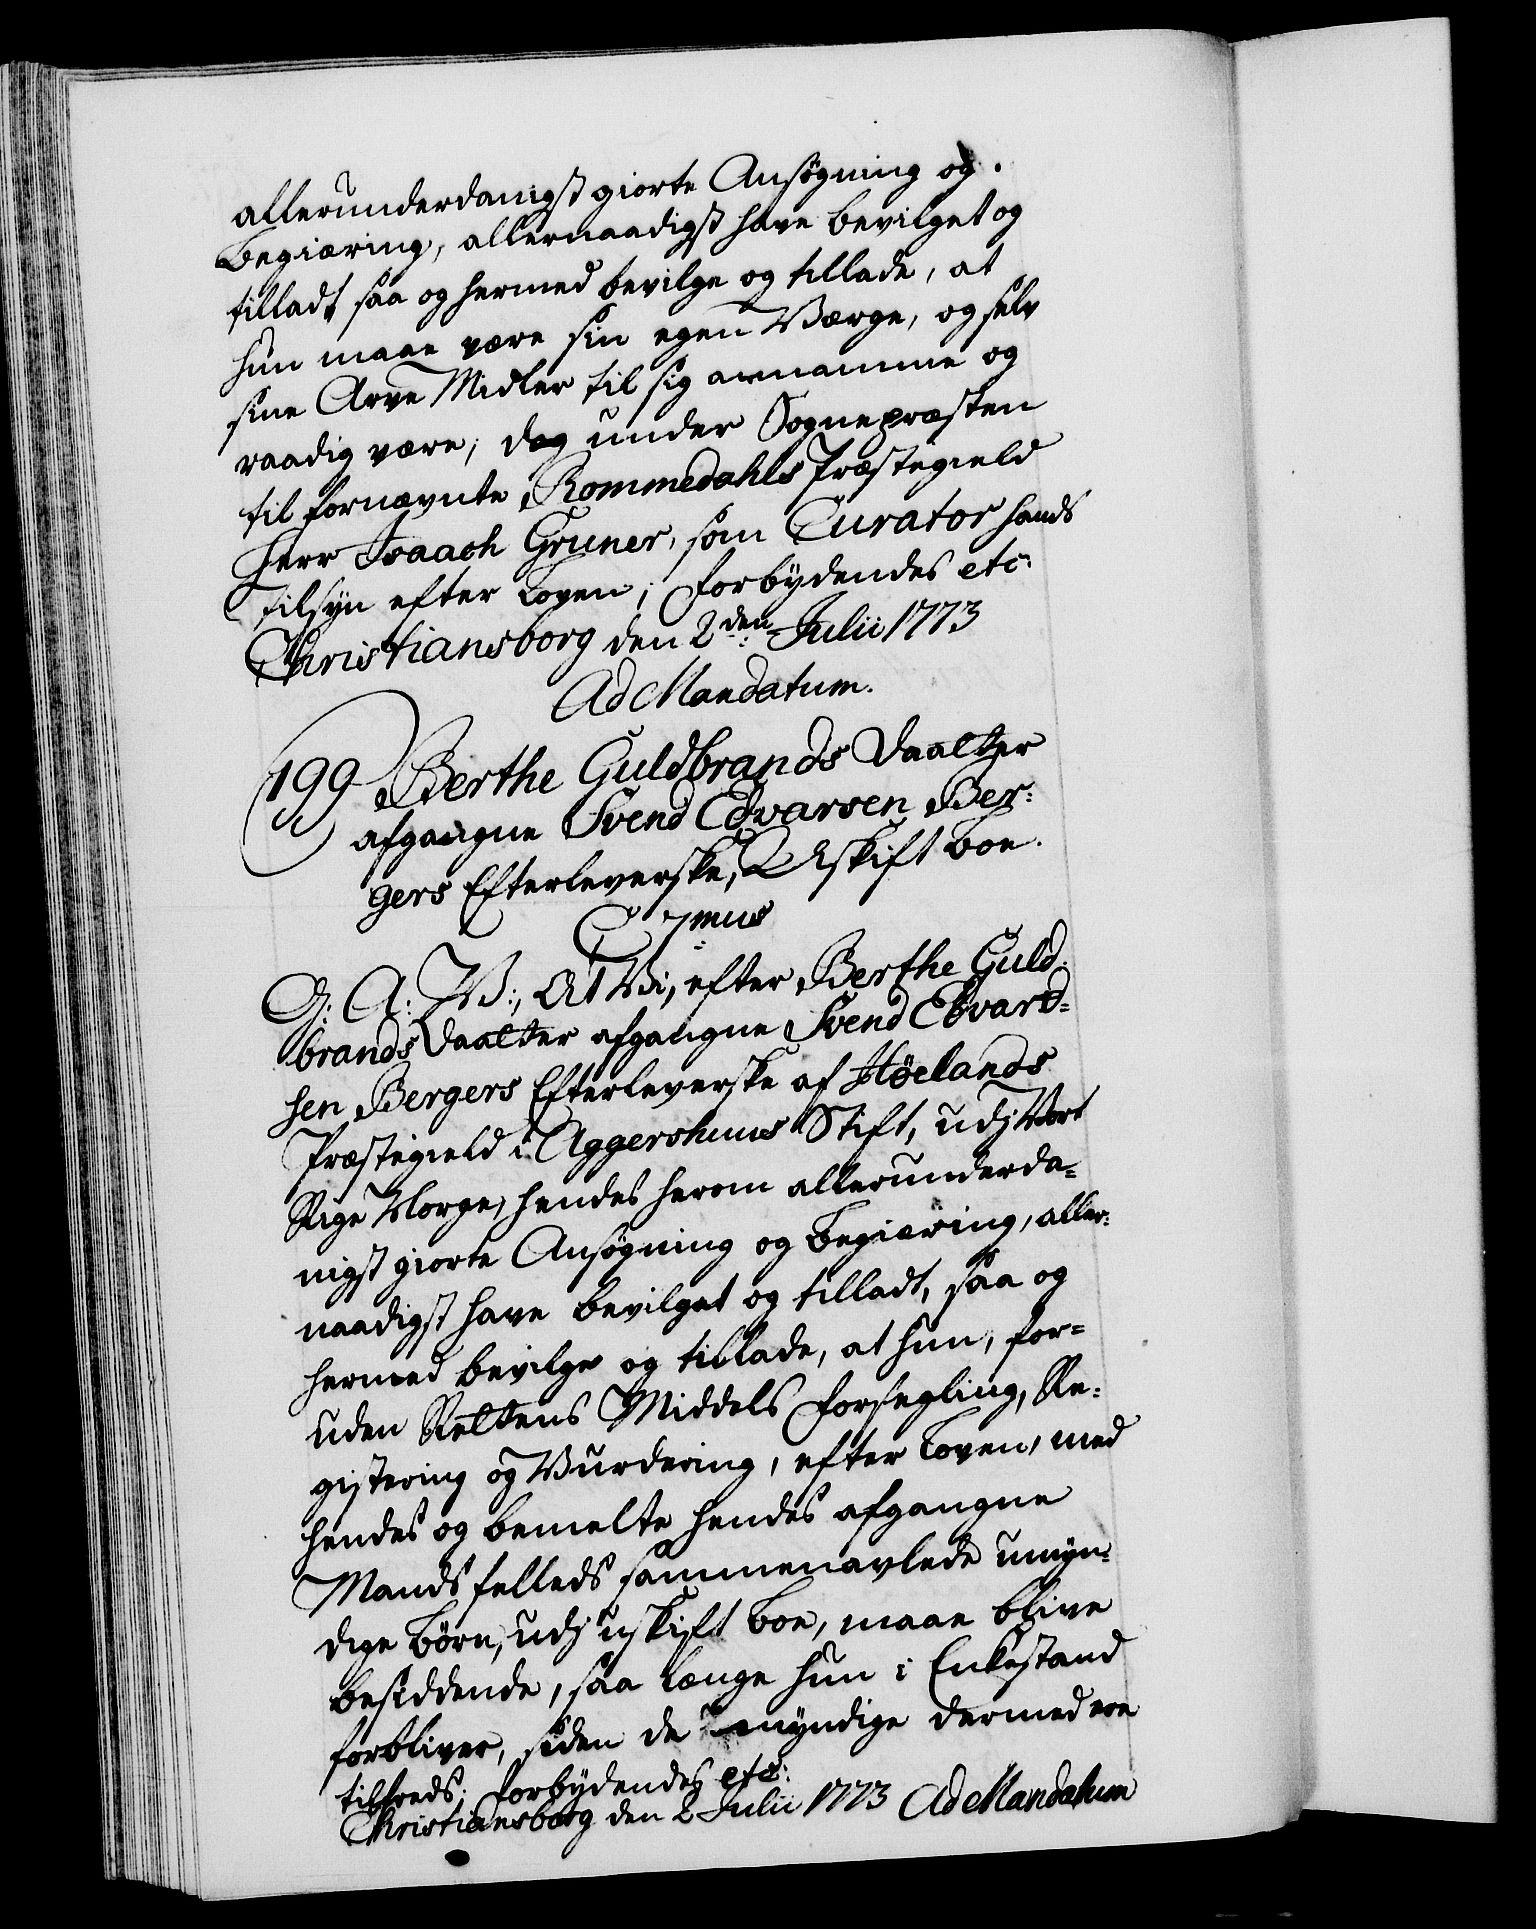 allerunderdanigst giorte Ansøgning og
Begiæring, allernaadigst have bevilget og
tilladt saa og hermed bevilge og tillade, at
hun maae være sin egen Værge, og selv
sine Arve Midler til sig annamme og
raadig være, dog under Sognepræsten
til fornævnte Rommedahls Præstegield
Herr Isaach Gruner, som Curator hands
tilsyn efter Loven; forbydendes etc:
Christiansborg den 2den Julii 1773
Ad Mandatum.
199 Berthe Guldbrands Daatter
afgangne Svend Edvarsen Ber:
gers Efterleverske, Uskift Boe.
C 7mus
G: A: V:, At Vi, efter Berthe Guld:
brands Daatter afgangne Svend Edvard=
sen Bergers Efterleverske af Høelands
Præstegield i Aggershuus Stift, udj Vort
Rige Norge, hendes herom allerunderda=
nigst giorte Ansøgning og Begiæring, aller:
naadigst have bevilget og tilladt, saa og
hermed bevilge og tillade, at hun, for=
uden Rettens Middels Forsegling, Re:
gistering og Vurdering, efter Loven, med
hendes og bemelte hendes afgangne
Mands felleds sammenavlede umyn:
dige Børn, udj uskift Boe, maae blive
besiddende, saa længe hun i Enkestand
forbliver, siden de myndige dermed ere
tilfreds; forbydendes etc:
Christiansborg den 2 Julii 1773 Ad Mandatum